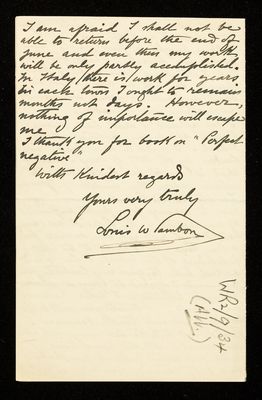 I am afraid I shall not be
able to return before the end of
June and even then my work
will be only partly accomplished.
In Italy there is work for years
in each town I ought to remain
months not days. However,
nothing of importance will escape
me.
I thank you for book on "Perfect
negative"
With Kindest regards
Yours very truly
Louis W Sambon
WR2/9/34